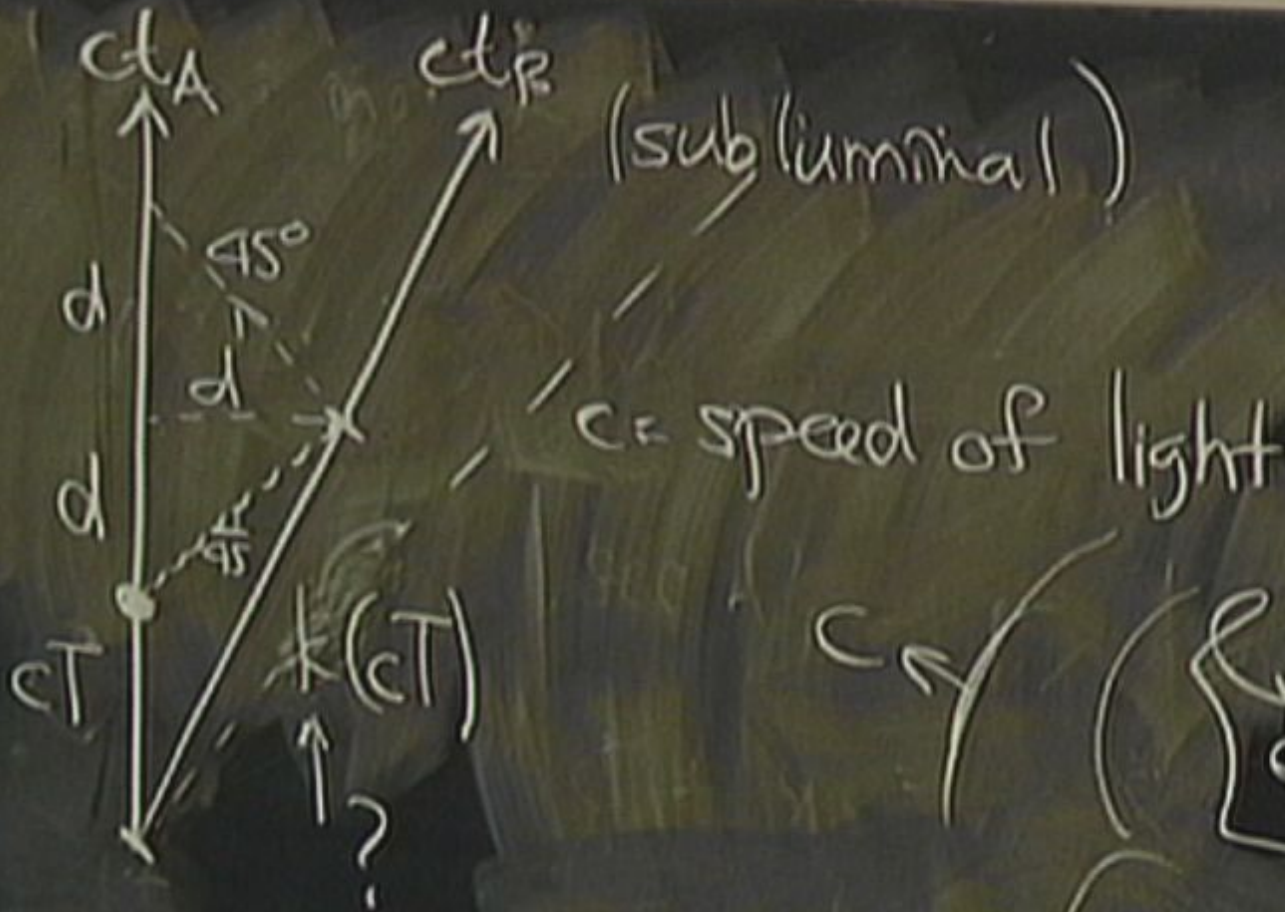 ct_A ct_B (subluminal)
45°
d
d
c = speed of light
d
45
cT k(cT) c
?